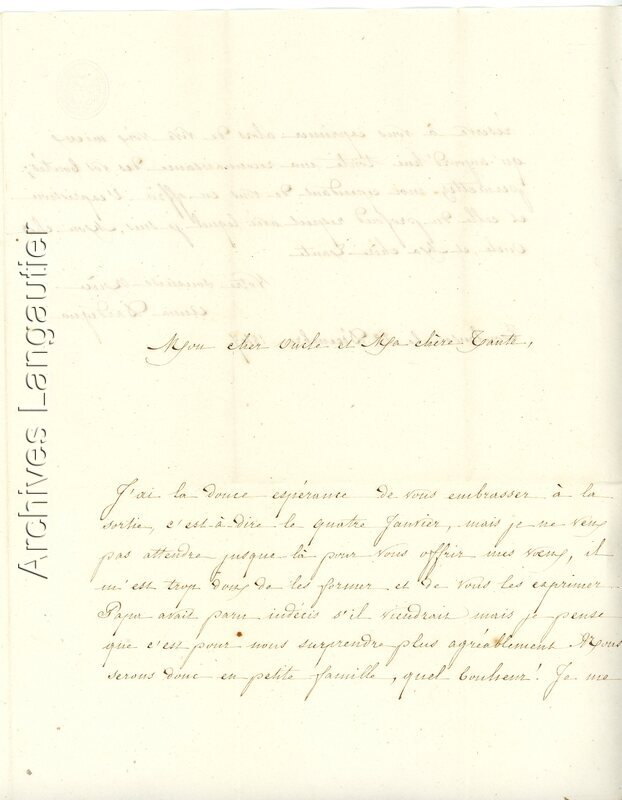 Archives Langautier
Mon cher Oncle et Ma chère Tante,
J'ai la douce espérance de vous embrasser à la
sortie, c'est-à-dire le quatre Janvier, mais je ne veux
pas attendre jusque là pour vous offrir mes vœux, il
m'est trop doux de les former et de vous les exprimer
Papa avait paru indécis s'il viendrait mais je pense
que c'est pour nous surprendre plus agréablement Nous
serons donc en petite famille, quel bonheur! Je me